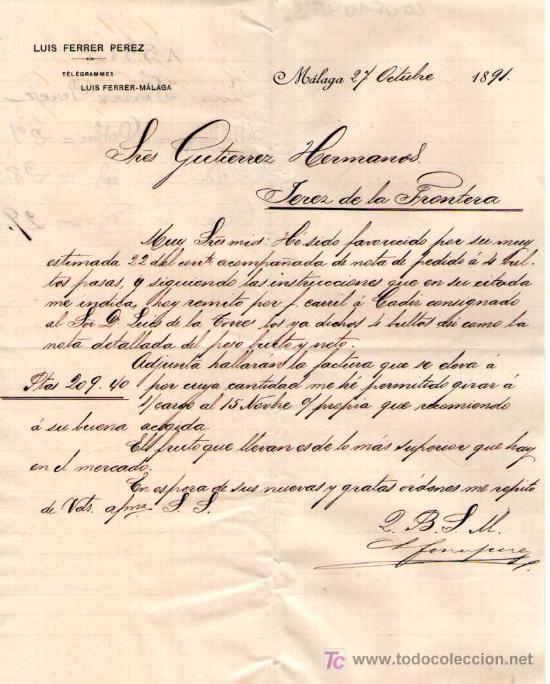 LUIS FERRER PEREZ
TÉLÉGRAMMES
LUIS FERRER-MÁLAGA
Málaga 27 Octubre 1891.
Sres Gutierrez Hermanos.
Jerez de la Frontera
Muy Sres mios: He sido favorecido por su muy
estimada 22 del corte acompañada de nota de pedido á 4 bul-
tos pasas, y siguiendo las instrucciones que en su citada
me indica, hoy remito por f. carril á Cadiz consignado
al Sor D. Luis de la Torre los ya dichos 4 bultos asi como la
nota detallada del peso bruto y neto.
Adjunta hallarán la factura que se eleva á
Ptas 209.40 por cuya cantidad me hé permitido girar á
s/cargo al 15 Novbre o/ propia que recomiendo
á su buena acogida.
El fruto que llevan es de lo más superior que hay
en el mercado.
En espera de sus nuevas y gratas órdenes me repito
de Vds. afmo. S. S.
Q. B. S. M.
TC www.todocoleccion.net